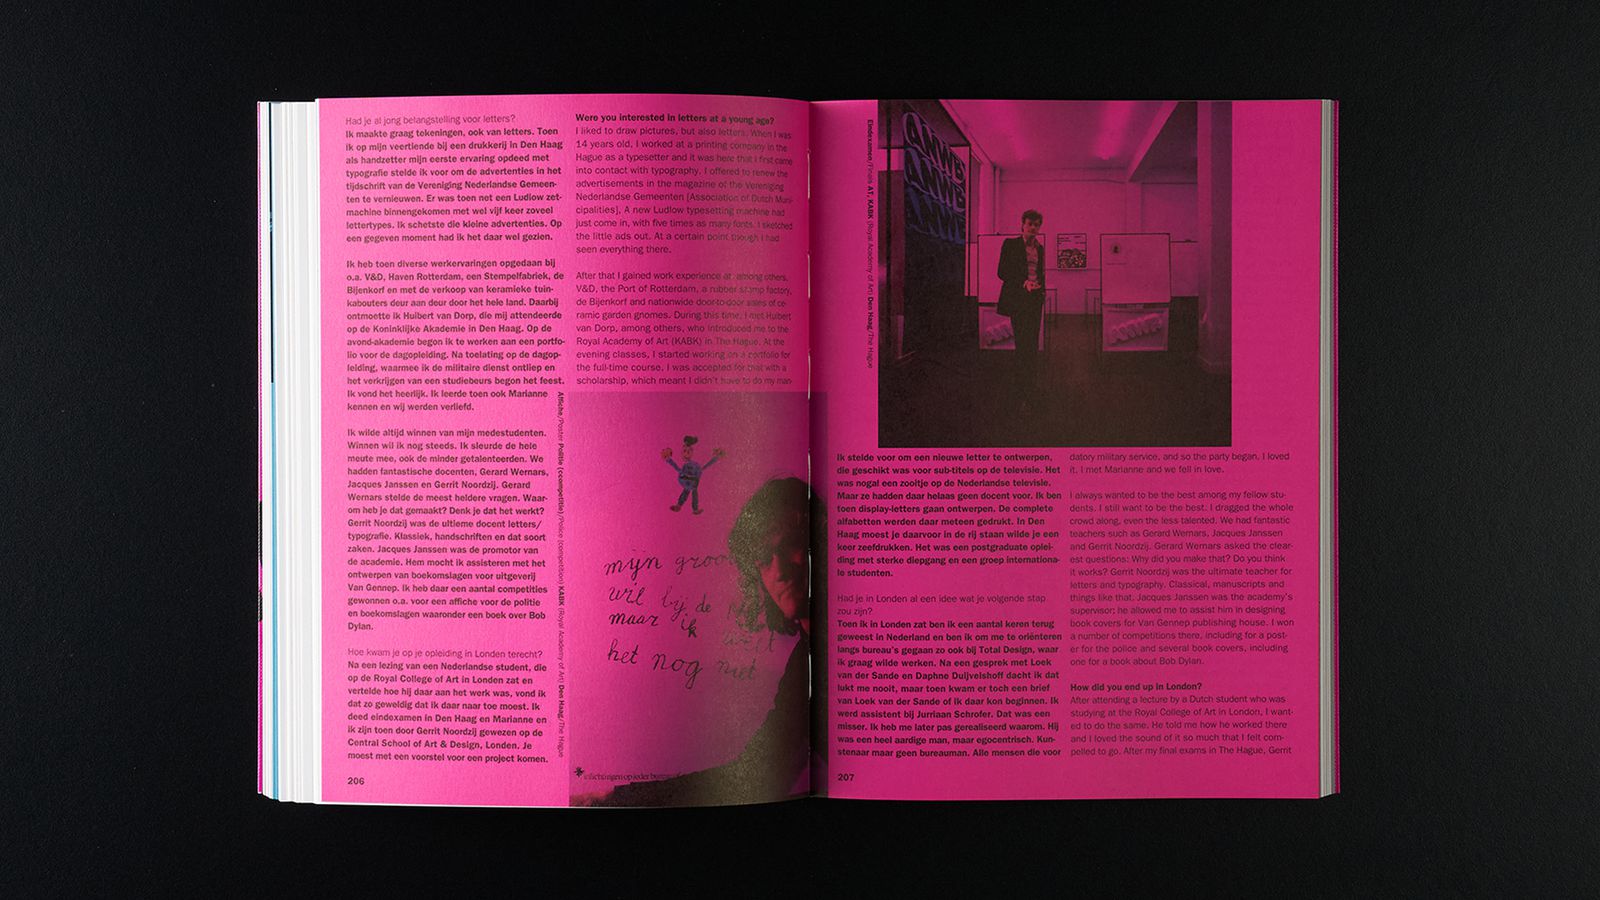 Had je al jong belangstelling voor letters?
Ik maakte graag tekeningen, ook van letters. Toen
ik op mijn veertiende bij een drukkerij in Den Haag
als handzetter mijn eerste ervaring opdeed met
typografie stelde ik voor om de advertenties in het
tijdschrift van de Vereniging Nederlandse Gemeen-
ten te vernieuwen. Er was toen net een Ludlow zet-
machine binnengekomen met wel vijf keer zoveel
lettertypes. Ik schetste die kleine advertenties. Op
een gegeven moment had ik het daar wel gezien.
Ik heb toen diverse werkervaringen opgedaan bij
o.a. V&D, Haven Rotterdam, een Stempelfabriek, de
Bijenkorf en met de verkoop van keramieke tuin-
kabouters deur aan deur door het hele land. Daarbij
ontmoette ik Huibert van Dorp, die mij attendeerde
op de Koninklijke Akademie in Den Haag. Op de
avond-akademie begon ik te werken aan een portfo-
lio voor de dagopleiding. Na toelating op de dagop-
leiding, waarmee ik de militaire dienst ontliep en
het verkrijgen van een studiebeurs begon het feest.
Ik vond het heerlijk. Ik leerde toen ook Marianne
kennen en wij werden verliefd.
Ik wilde altijd winnen van mijn medestudenten.
Winnen wil ik nog steeds. Ik sleurde de hele
meute mee, ook de minder getalenteerden. We
hadden fantastische docenten, Gerard Wernars,
Jacques Janssen en Gerrit Noordzij. Gerard
Wernars stelde de meest heldere vragen. Waar-
om heb je dat gemaakt? Denk je dat het werkt?
Gerrit Noordzij was de ultieme docent letters/
typografie. Klassiek, handschriften en dat soort
zaken. Jacques Janssen was de promotor van
de academie. Hem mocht ik assisteren met het
ontwerpen van boekomslagen voor uitgeverij
Van Gennep. Ik heb daar een aantal competities
gewonnen o.a. voor een affiche voor de politie
en boekomslagen waaronder een boek over Bob
Dylan.
Hoe kwam je op je opleiding in Londen terecht?
Na een lezing van een Nederlandse student, die
op de Royal College of Art in Londen zat en
vertelde hoe hij daar aan het werk was, vond ik
dat zo geweldig dat ik daar naar toe moest. Ik
deed eindexamen in Den Haag en Marianne en
ik zijn toen door Gerrit Noordzij gewezen op de
Central School of Art & Design, Londen. Je
moest met een voorstel voor een project komen.
206
Were you interested in letters at a young age?
I liked to draw pictures, but also letters. When I was
14 years old, I worked at a printing company in the
Hague as a typesetter and it was here that I first came
into contact with typography. I offered to renew the
advertisements in the magazine of the Vereniging
Nederlandse Gemeenten [Association of Dutch Muni-
cipalities], A new Ludlow typesetting machine had
just come in, with five times as many fonts. I sketched
the little ads out. At a certain point though I had
seen everything there.
After that I gained work experience at, among others,
V&D, the Port of Rotterdam, a rubber stamp factory,
de Bijenkorf and nationwide door-to-door sales of ce-
ramic garden gnomes. During this time, I met Huibert
van Dorp, among others, who introduced me to the
Royal Academy of Art (KABK) in The Hague. At the
evening classes, I started working on a portfolio for
the full-time course. I was accepted for that with a
scholarship, which meant I didn't have to do my man-
Affiche/Poster Politie (ccompetitie)/Police (competition) KABK (Royal Academy of Art) Den Haag/The Hague
mijn groo
wil bij de
maar ik
het nog niet
inlichtingen op ieder bureau
Eindexamen/Finals AT, KABK (Royal Academy of Art) Den Haag/The Hague
ANWB
ANWB
ANWB
Ik stelde voor om een nieuwe letter te ontwerpen,
die geschikt was voor sub-titels op de televisie. Het
was nogal een zooitje op de Nederlandse televisie.
Maar ze hadden daar helaas geen docent voor. Ik ben
toen display-letters gaan ontwerpen. De complete
alfabetten werden daar meteen gedrukt. In Den
Haag moest je daarvoor in de rij staan wilde je een
keer zeefdrukken. Het was een postgraduate oplei-
ding met sterke diepgang en een groep internationa-
le studenten.
Had je in Londen al een idee wat je volgende stap
zou zijn?
Toen ik in Londen zat ben ik een aantal keren terug
geweest in Nederland en ben ik om me te oriënteren
langs bureau's gegaan zo ook bij Total Design, waar
ik graag wilde werken. Na een gesprek met Loek
van der Sande en Daphne Duijvelshoff dacht ik dat
lukt me nooit, maar toen kwam er toch een brief
van Loek van der Sande of ik daar kon beginnen. Ik
werd assistent bij Jurriaan Schrofer. Dat was een
misser. Ik heb me later pas gerealiseerd waarom. Hij
was een heel aardige man, maar egocentrisch. Kun-
stenaar maar geen bureauman. Alle mensen die voor
207
datory military service, and so the party began. I loved
it. I met Marianne and we fell in love.
I always wanted to be the best among my fellow stu-
dents. I still want to be the best. I dragged the whole
crowd along, even the less talented. We had fantastic
teachers such as Gerard Wernars, Jacques Janssen
and Gerrit Noordzij. Gerard Wernars asked the clear-
est questions: Why did you make that? Do you think
it works? Gerrit Noordzij was the ultimate teacher for
letters and typography. Classical, manuscripts and
things like that. Jacques Janssen was the academy's
supervisor; he allowed me to assist him in designing
book covers for Van Gennep publishing house. I won
a number of competitions there, including for a post-
er for the police and several book covers, including
one for a book about Bob Dylan.
How did you end up in London?
After attending a lecture by a Dutch student who was
studying at the Royal College of Art in London, I want-
ed to do the same. He told me how he worked there
and I loved the sound of it so much that I felt com-
pelled to go. After my final exams in The Hague, Gerrit